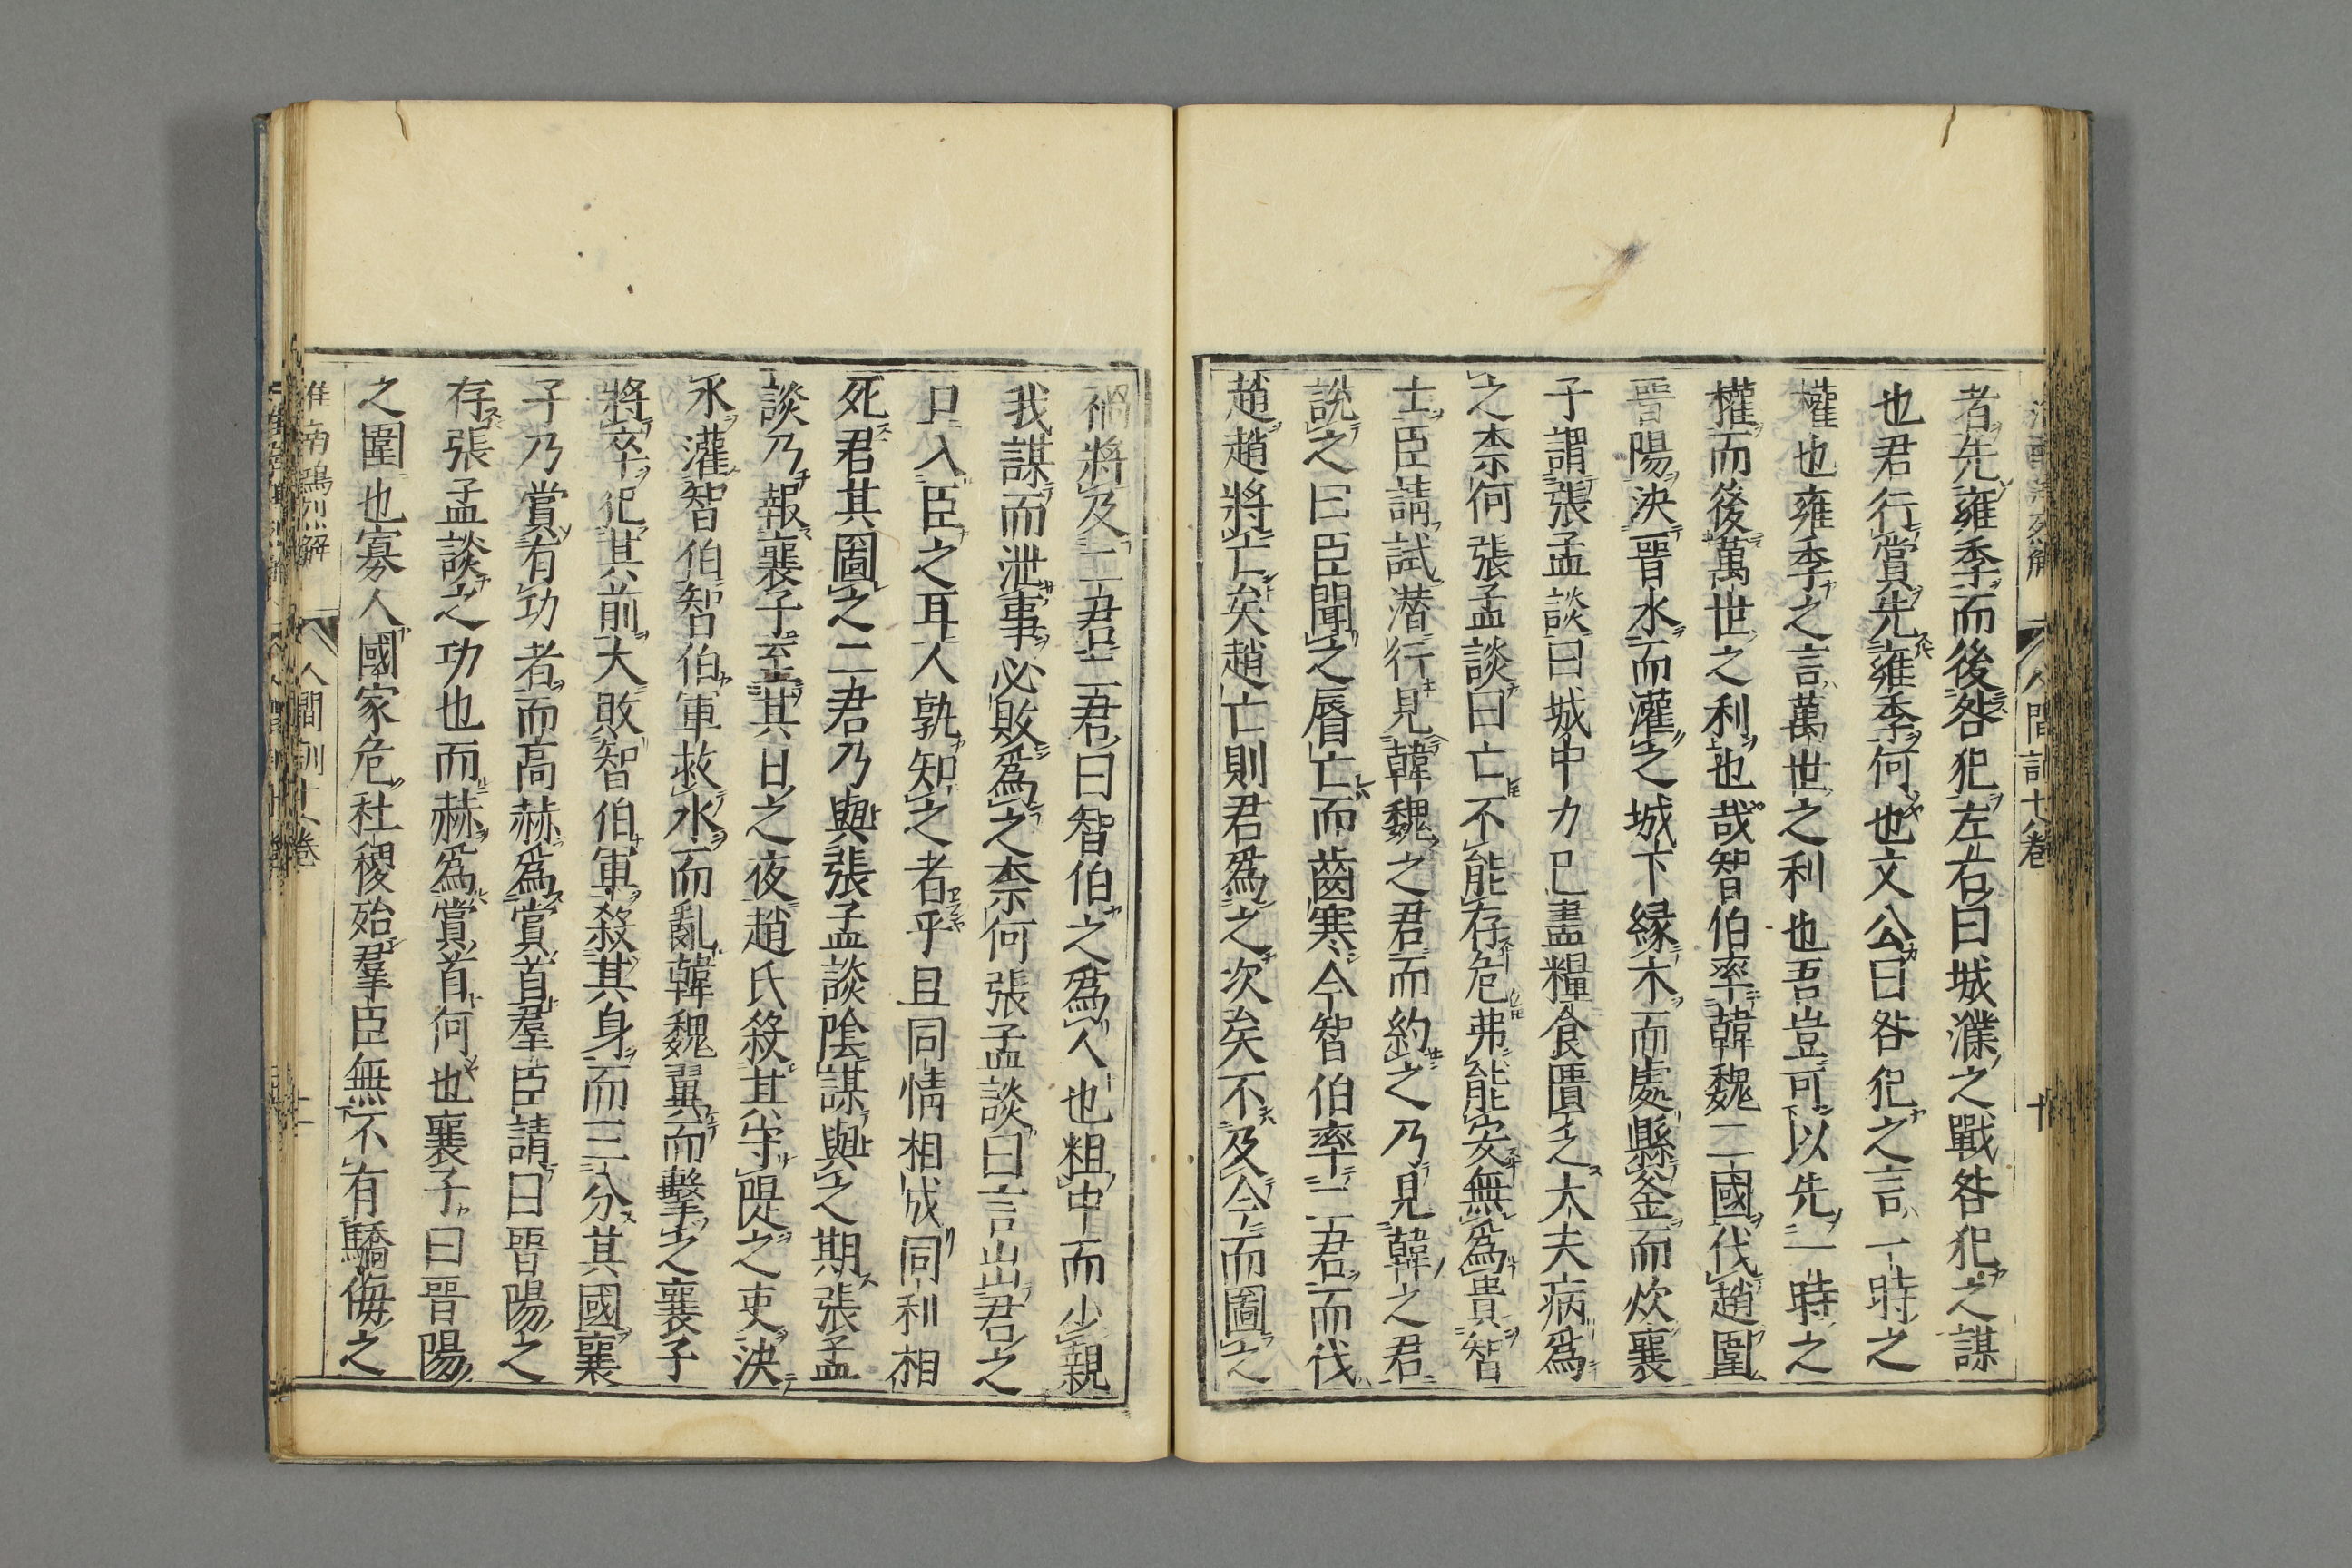 人間訓 卷 十
者先雍季而後咎犯左右曰城濮之戰咎犯之謀
也君行賞先雍季何也文公曰咎犯之言一時之
權也雍季之言萬世之利也吾豈可以先一時之
權而後萬世之利也哉智伯率韓魏二國伐趙圍
晉陽決晉水而灌之城下縁木而處縣釜而炊襄
子謂張孟談曰城中力已盡糧食匱乏大夫病爲
之柰何張孟談曰亡不能存危弗能安無爲貴智
士臣請試潜行見韓魏之君而約之乃見韓之君
說之曰臣聞之脣亡而齒寒今智伯率二君而伐
趙趙將亡矣趙亡則君爲之次矣不及今而圖之
禍將及二君二君曰智伯之爲人也粗中而少親
我謀而泄事必敗爲之柰何張孟談曰言出君之
口入臣之耳人孰知之者乎且同情相成同利相
死君其圖之二君乃與張孟談陰謀與之期張孟
談乃報襄子至其日之夜趙氏殺其守隄之吏決
水灌智伯智伯軍救水而亂韓魏翼而擊之襄子
將卒犯其前大敗智伯軍殺其身而三分其國襄
子乃賞有功者而高赫爲賞首羣臣請曰晉陽之
存張孟談之功也而赫爲賞首何也襄子曰晉陽
之圍也寡人國家危社稷殆羣臣無不有驕侮之
淮南鴻烈解 人間訓十八卷 十一